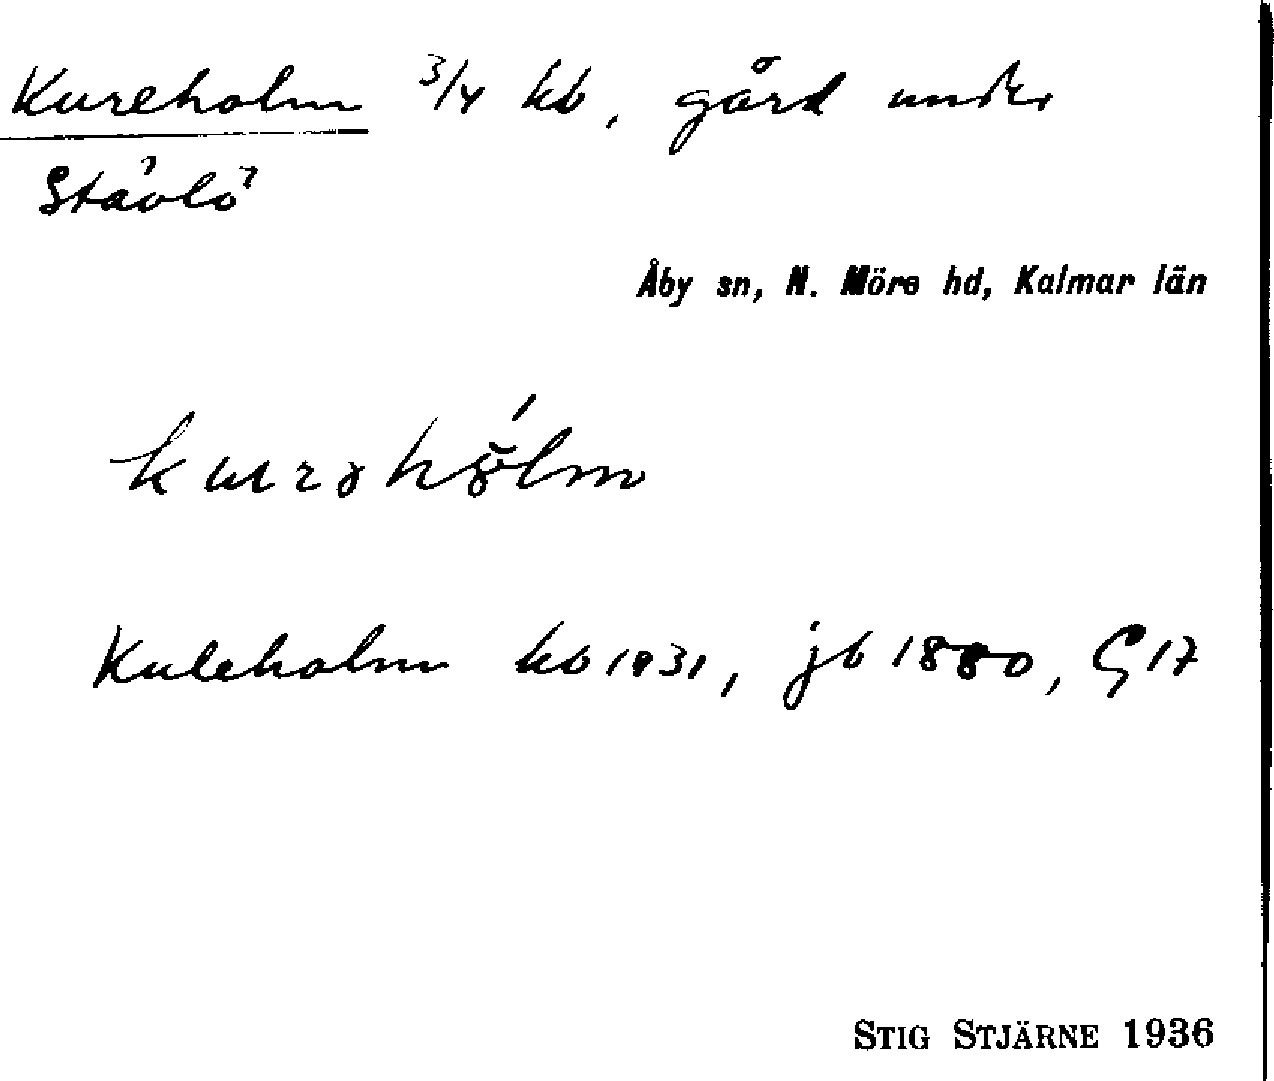 Kureholm 3/4 kb, gård under
Stävlö
Åby sn, N. Möre hd, Kalmar län
Kuleholm kb 1931, jb 1880, G 17
STIG STJÄRNE 1936